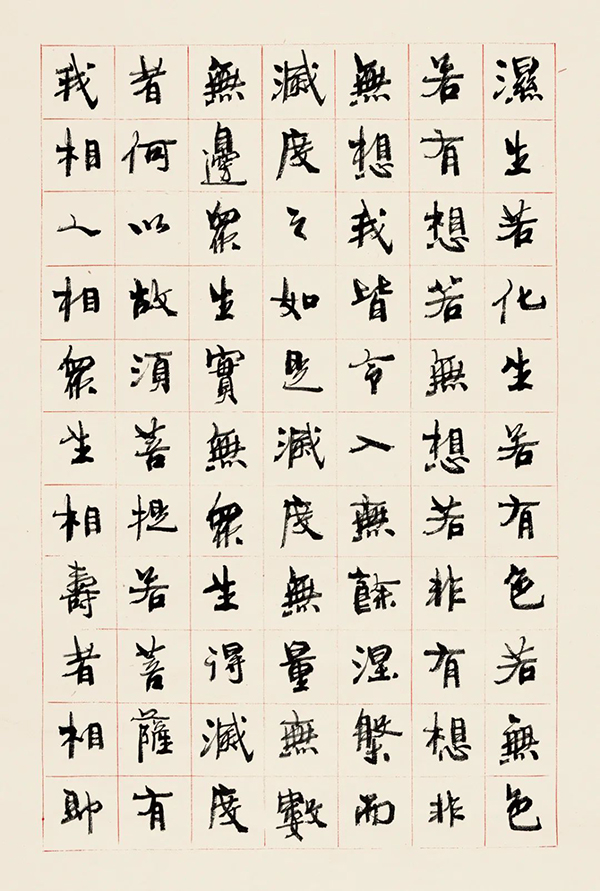 濕生若化生若有色若無色
若有想若無想若非有想非
無想我皆令入無餘涅槃而
滅度之如是滅度無量無數
無邊眾生實無眾生得滅度
者何以故須菩提若菩薩有
我相人相眾生相壽者相即